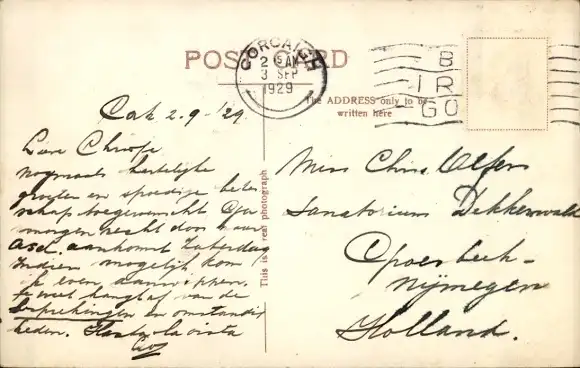 POST CARD
CORCAIGH
2 15 AM
3 SEP
1929
B
IR
GO
The ADDRESS only to be
written here
This is a real photograph
Cork 2-9-'29
Lieve Chrisje
nogmaals hartelijke
groeten en spoedige beter-
schap toegewenscht. Ga
morgen recht door naar
aankomst Zaterdag
Indien mogelijk kom
ik even aanwippen.
Je weet hangt af van de
besprekingen en omstandig-
heden. Hasta la vista
Miss Chris. Olfers
Sanatorium Dekkerswald
Groesbeek-
Nijmegen
Holland.